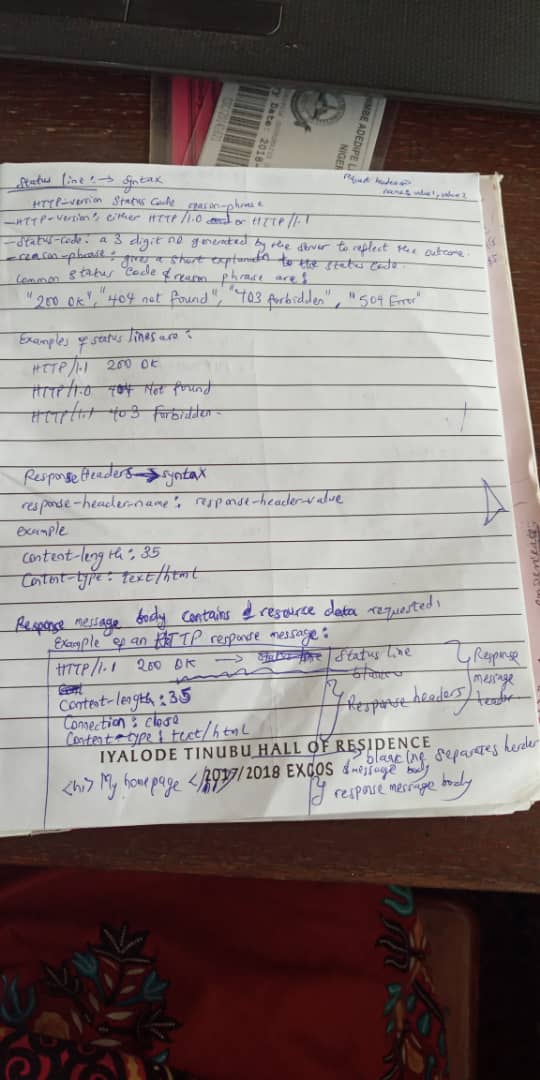 Status line :→ Syntax
request header⇒
name: value1, value2
HTTP-version Status Code reason-phrase
- HTTP-version: either HTTP/1.0 or HTTP/1.1
- Status-code: a 3 digit no generated by the server to reflect the outcome.
- reason-phrase: gives a short explanation to the status code.
Common status code & reason phrase are:
"200 OK", "404 not found", "403 forbidden", "504 Error"
Examples of status lines are:
HTTP/1.1 200 OK
HTTP/1.0 404 Not found
HTTP/1.1 403 Forbidden.
Response Headers → syntax
response-header-name: response-header-value
example
Content-length: 35
Content-type: text/html
Response message body contains d resource data requested.
Example of an HTTP response message:
HTTP/1.1 200 OK → Status line
Content-length: 35
Connection: close
Content-type: text/html
Response headers
Response
message
header
IYALODE TINUBU HALL OF RESIDENCE
2017/2018 EXCOS
→ blank line separates header
& message body
<h1> My homepage </h1>
response message body